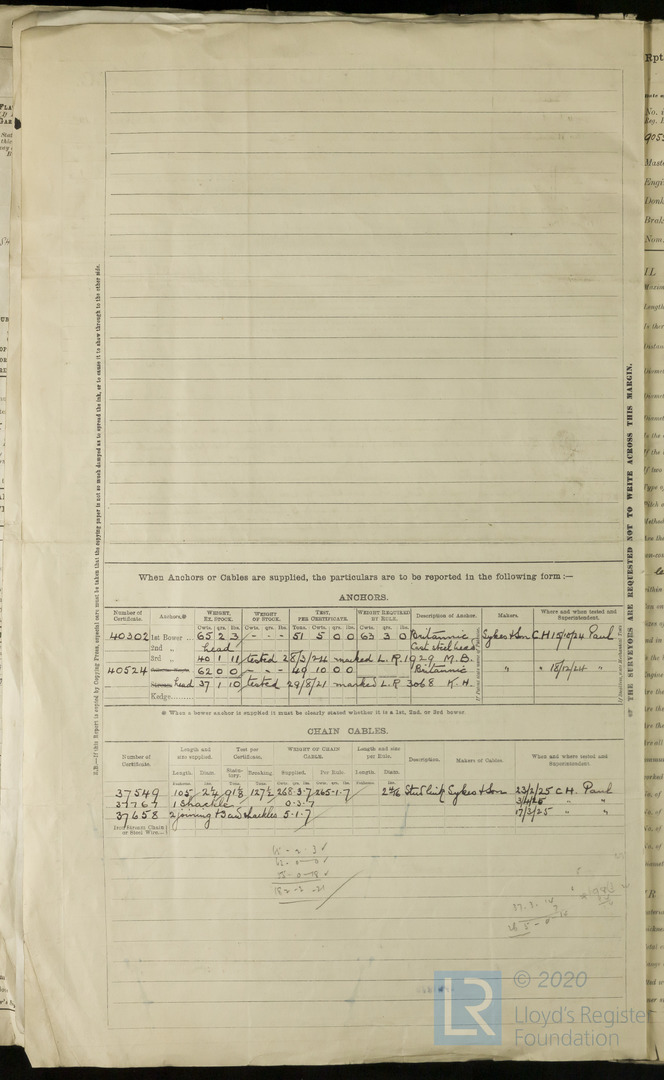 When Anchors or Cables are supplied, the particulars are to be reported in the following form :—
ANCHORS.
Number of Certificate. Anchors.* WEIGHT, EX. STOCK. WEIGHT OF STOCK. TEST, PER CERTIFICATE. WEIGHT REQUIRED BY RULE. Description of Anchor. Makers. Where and when tested and Superintendent.
Cwts. qrs. lbs. Cwts. qrs. lbs. Tons. Cwts. qrs. lbs. Cwts. qrs. lbs.
40302 1st Bower ... 65 2 3 - - - 51 5 0 0 63 3 0 Britannic Sykes & Son C.H 15/10/24 Paul
2nd „ head Cast steel head
3rd „ 40 1 11 tested 28/3/24 marked L.R. 1929 M.B.
40524 62 0 0 - - - 49 10 0 0 Britannic " " 18/12/24 "
head 37 1 10 tested 29/8/21 marked L.R 3068 K.H.
Kedge
* When a bower anchor is supplied it must be clearly stated whether it is a 1st, 2nd, or 3rd bower.
CHAIN CABLES.
Number of Certificate. Length and size supplied. Test per Certificate. WEIGHT OF CHAIN CABLE. Length and size per Rule. Description. Makers of Cables. Where and when tested and Superintendent.
Length. Diam. Statutory. Breaking Supplied. Per Rule. Length. Diam.
37549 105 2 1/4 91 1/8 127 1/2 268·3·7 265·1·7 2 4/16 Stud link Sykes & Son 23/2/25 C.H. Paul
37767 1 Shackle 0·3·7 3/4/25 " "
37658 2 joining & 3 end shackles 5·1·7 17/3/25 " "
Iron Stream Chain or Steel Wire...
N.B.—If this Report is copied by Copying Press, especial care must be taken that the copying paper is not so much damped as to spread the ink, or to cause it to show through to the other side.
* THE SURVEYORS ARE REQUESTED NOT TO WRITE ACROSS THIS MARGIN.
LR
© 2020
Lloyd's Register
Foundation